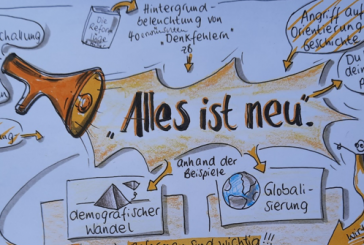 Hintergrund-
beleuchtung von
40
"Denkfehlern"
zB
Die
Angriff auf
Orientierung
Geschichte
Du
"Alles ist neu".
anhand der
Beispiele
demografischer
Wandel
Globali-
sierung
sind wichtig!!!